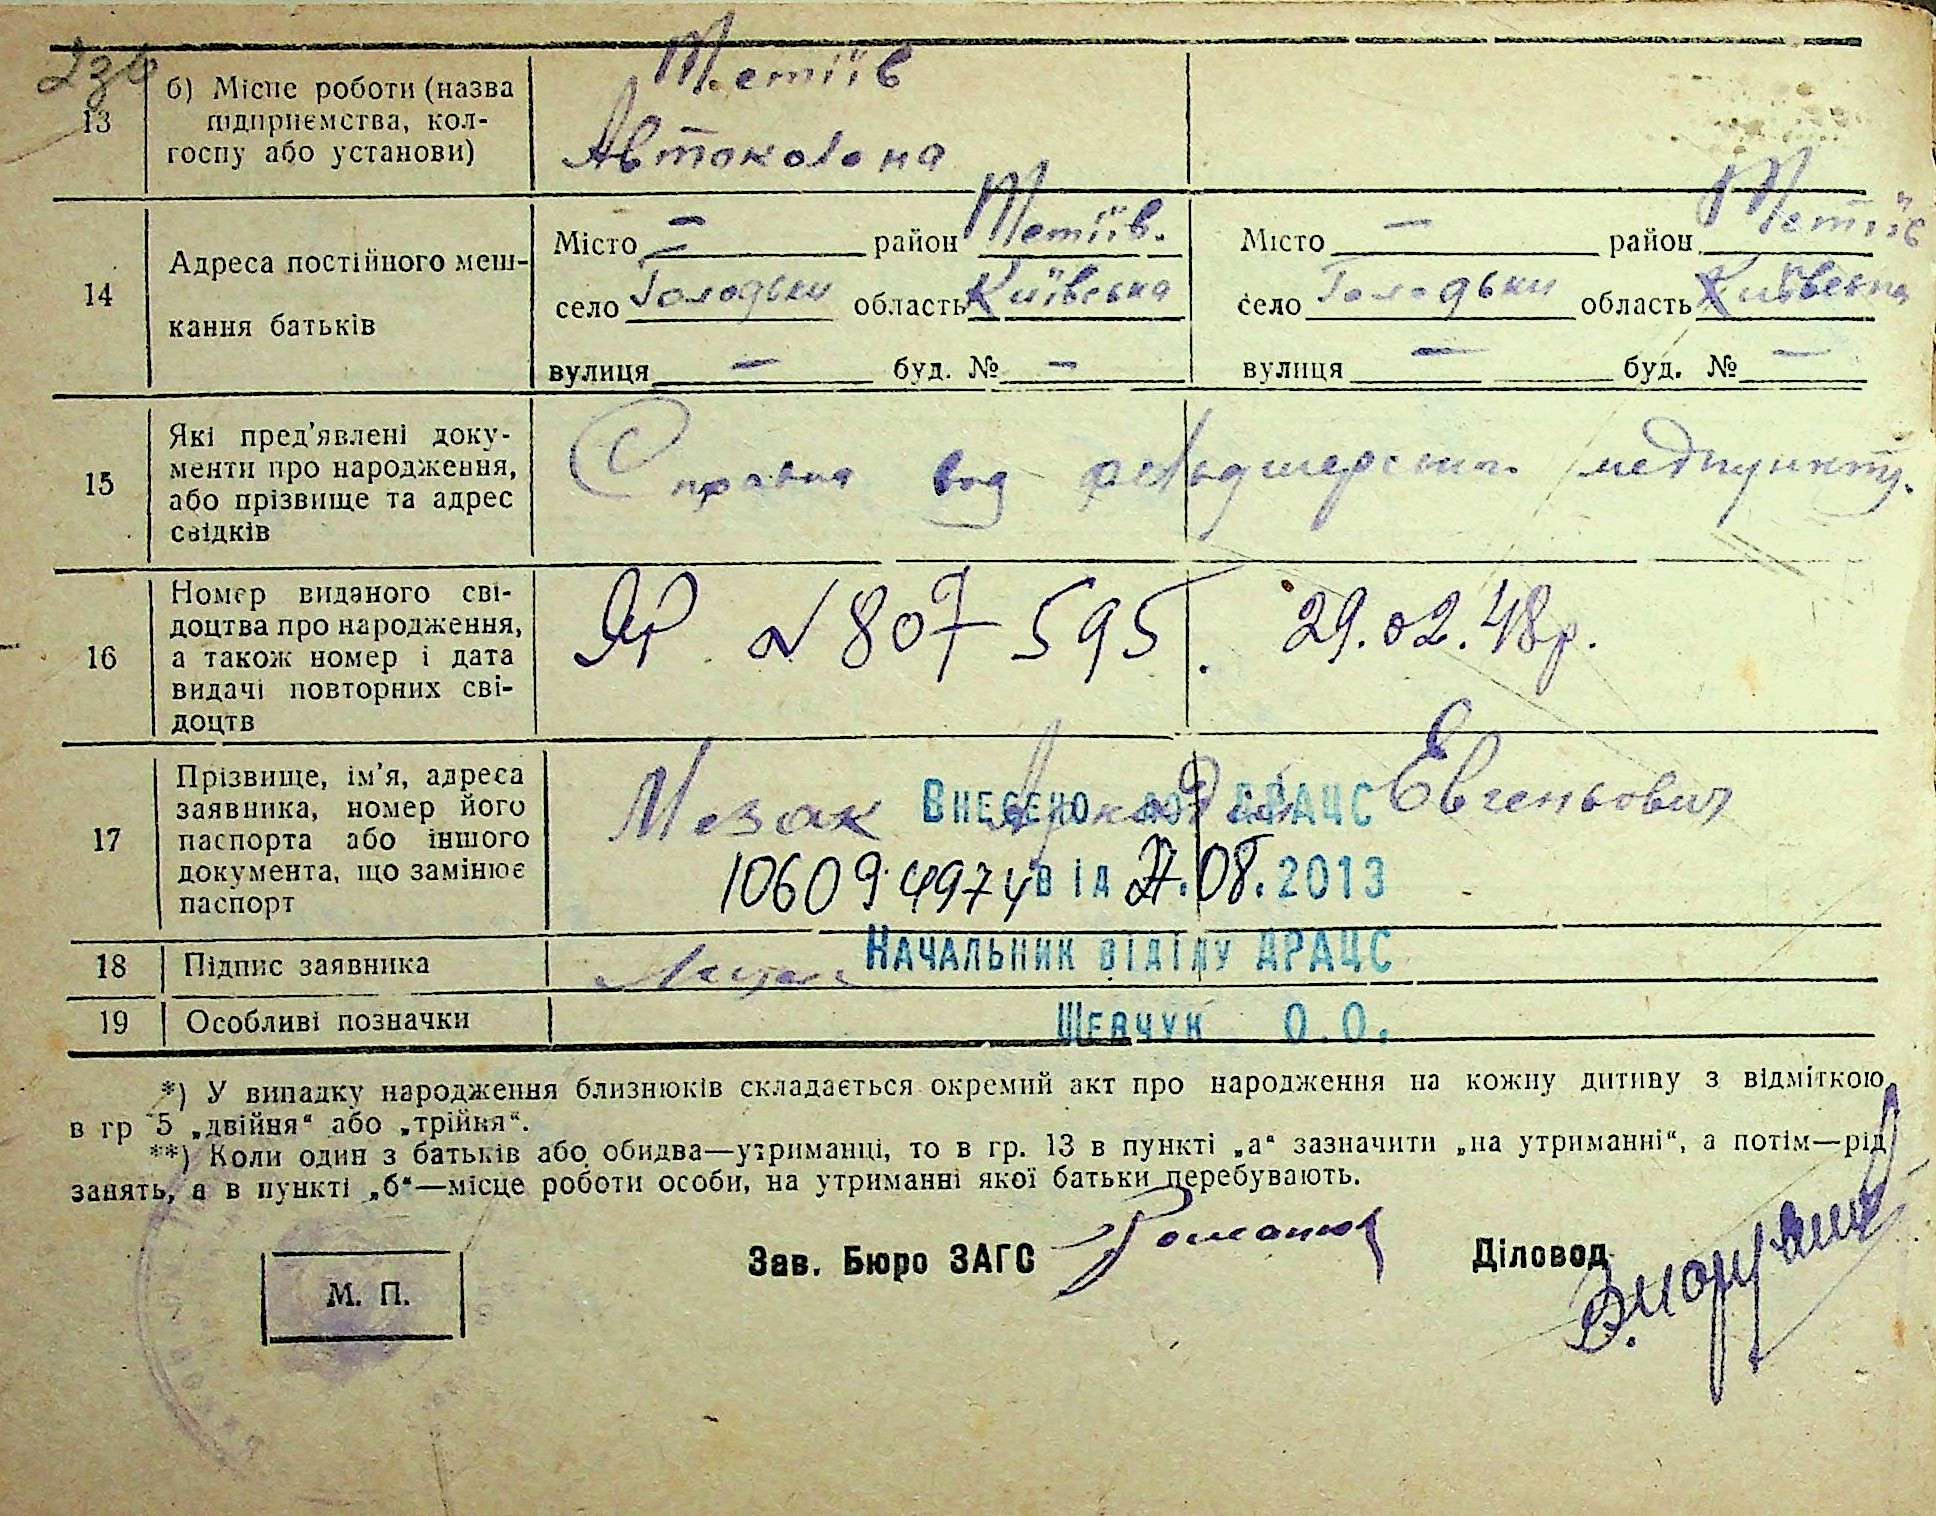 236
13
б) Місце роботи (назва
підприємства, кол-
госпу або установи)
Тетіїв
Автоколона
14
Адреса постійного меш-
кання батьків
Місто — район Тетіїв.
село Голодьки область Київська
вулиця — буд. № —
Місто — район Тетіїв
село Голодьки область Київська
вулиця — буд. № —
15
Які пред'явлені доку-
менти про народження,
або прізвище та адрес
свідків
Справка від фельдшерського медпункту.
16
Номер виданого сві-
доцтва про народження,
а також номер і дата
видачі повторних сві-
доцтв
ЯР № 807595. 29.02.48р.
17
Прізвище, ім'я, адреса
заявника, номер його
паспорта або іншого
документа, що замінює
паспорт
Мезак Аркадій Евгеньович
Внесено до ДРАЦС
106094974 від 27.08.2013
Начальник відділу ДРАЦС
Шевчук О.О.
18
Підпис заявника
19
Особливі позначки
*) У випадку народження близнюків складається окремий акт про народження на кожну дитину з відміткою
в гр 5 „двійня“ або „трійня“.
**) Коли один з батьків або обидва—утриманці, то в гр. 13 в пункті „а“ зазначити „на утриманні“, а потім—рід
занять, а в пункті „б“—місце роботи особи, на утриманні якої батьки перебувають.
М. П.
Зав. Бюро ЗАГС Романюк
Діловод